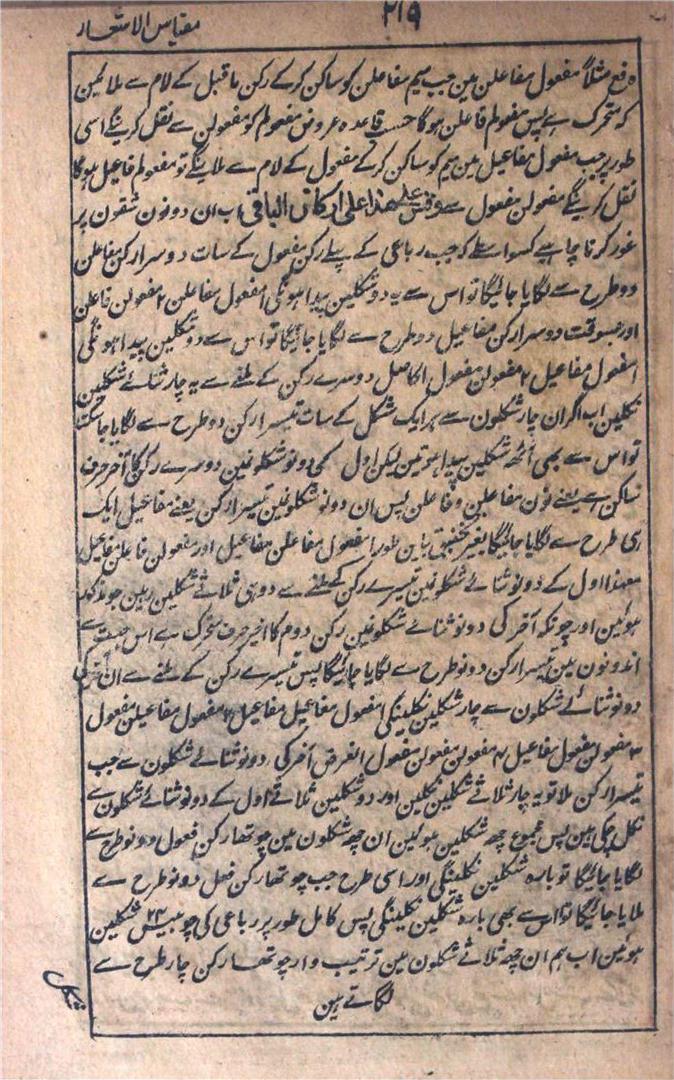 مقیاس الاشعار
۲۱۹
دفع مثلاً مفعول مفاعلن مین جب میم مفاعلن کو ساکن کرکے رکن ماقبل کے لام سے ملائین
کہ متحرک ہے پس مفعولم فاعلن ہوگا حسب قاعدہ عروض مفعولم کو مفعولن سے نقل کرینگے اسی
طور پر جب مفعول مفاعیل مین میم کو ساکن کرکے مفعول کے لام سے ملاینگے تو مفعولم فاعیل ہوگا
نقل کرینگے مفعولن مفعول سے وقس علے ھذا علی ارکان الباقی اب ان دونون شقون پر
غور کرنا چاہیے کسواسطے کہ جب رباعی کے پہلے رکن مفعول کے سات دوسرا رکن مفاعلن
دو طرح سے لگایا جائیگا تو اس سے یہ دو شکلین پیدا ہونگی ۱ مفعول مفاعلن ۲ مفعولن فاعلن
اور جسوقت دوسرا رکن مفاعیل دو طرح سے لگایا جائیگا تو اس سے دو شکلین پیدا ہونگی
۱ مفعول مفاعیل ۲ مفعولن مفعول الحاصل دوسرے رکن کے ملنے سے یہ چار ثنائے شکلین
نکلین اب اگر ان چار شکلون سے ہر ایک شکل کے سات تیسرا رکن دو طرح سے لگایا جا سکتا
تو اس سے بھی آٹھ شکلین پیدا ہوتین لیکن اول کی دونو شکلونین دوسرے رکن کا آخر حرف
ساکن ہے یعنے نون مفاعلن وفاعلن پس ان دونو شکلونین تیسرا رکن یعنے مفاعیل ایک
ہی طرح سے لگایا جائیگا بغیر تخنیق باین طور ۱ مفعول مفاعلن مفاعیل اور مفعولن فاعلن مفاعیل
معہذا اول کے دونو ثنائے شکلونین تیسرے رکن کے ملنے سے دو ہی ثلاثے شکلین رہین جو مذکور
ہوئین اور چونکہ آخر کی دونو ثنائے شکلونین رکن دوم کا اخیر حرف متحرک ہے اس جہت سے
اندونون مین تیسرا رکن دو نو طرح سے لگایا جائیگا پس تیسرے رکن کے ملنے سے ان آخر کی
دونو ثنائے شکلون سے چار شکلین نکلینگی ۱ مفعول مفاعیل مفاعیل ۲ مفعول مفاعیلن مفعول
۳ مفعولن مفعول مفاعیل ۴ مفعولن مفعولن مفعول الغرض آخر کی دونو ثنائے شکلون سے جب
تیسرا رکن ملا تو یہ چار ثلاثے شکلین نکلین اور دو شکلین ثلاثے اول کے دونو ثنائے شکلون سے
نکل چکی ہین پس مجموع چھ شکلین ہوئین ان چھ شکلون مین چوتھا رکن فعول دونو طرح سے
لگایا جائیگا تو بارہ شکلین نکلینگی اور اسی طرح جب چوتھا رکن فعل دونو طرح سے
ملایا جائیگا تو اس سے بھی بارہ شکلین نکلینگی پس کامل طور پر رباعی کی چوبیس ۲۴ شکلین
ہوئین اب ہم ان چھ ثلاثے شکلون مین ترتیب وار چوتھا رکن چار طرح سے
لگاتے ہین
شکل